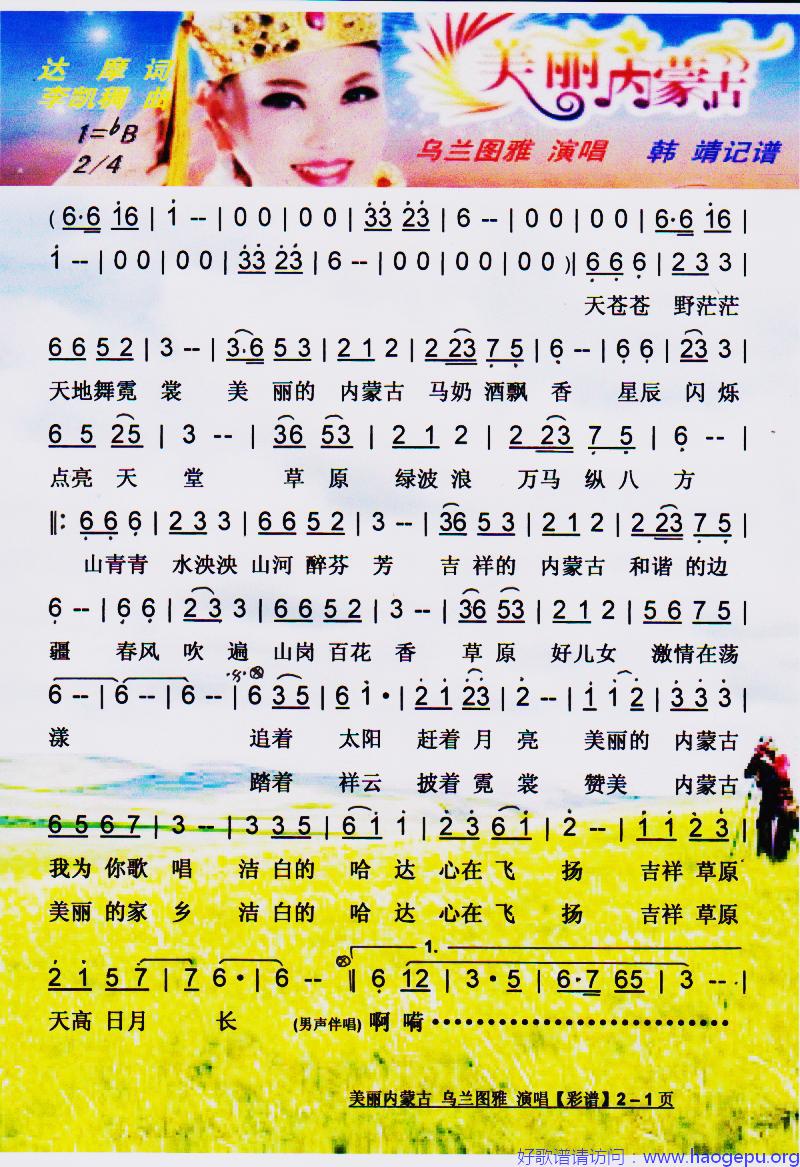 达 摩 词
李凯稠 曲
1=♭B
2/4
美丽内蒙古
乌兰图雅 演唱 韩 靖记谱
(6·6 16 | 1 -- | 0 0 | 0 0 | 33 23 | 6 -- | 0 0 | 0 0 | 6·6 16 |
1 -- | 0 0 | 0 0 | 33 23 | 6 -- | 0 0 | 0 0 | 0 0 )| 6 6 6 | 2 3 3 |
天苍苍 野茫茫
6 6 5 2 | 3 -- | 3·6 5 3 | 2 1 2 | 2 23 7 5 | 6 -- | 6 6 | 23 3 |
天地舞霓 裳 美 丽的 内蒙古 马奶 酒飘 香 星辰 闪 烁
6 5 25 | 3 -- | 36 53 | 2 1 2 | 2 23 7 5 | 6 -- |
点亮 天 堂 草 原 绿波 浪 万马 纵 八 方
‖: 6 6 6 | 2 3 3 | 6 6 5 2 | 3 -- | 36 5 3 | 2 1 2 | 2 23 7 5 |
山青青 水泱泱 山河 醉芬 芳 吉 祥的 内蒙古 和谐 的边
6 -- | 6 6 | 2 3 3 | 6 6 5 2 | 3 -- | 36 53 | 2 1 2 | 5 6 7 5 |
疆 春风 吹 遍 山岗 百花 香 草 原 好儿女 激情在荡
6 -- | 6 -- | 6 -- | 6 3 5 | 6 1· | 2 1 23 | 2 -- | 1 1 2 | 3 3 3 |
漾 追着 太阳 赶着 月 亮 美丽的 内蒙古
踏着 祥云 披着 霓 裳 赞美 内蒙古
6 5 6 7 | 3 -- | 3 3 5 | 6 1 1 | 2 3 6 1 | 2 -- | 1 1 2 3 |
我为 你歌 唱 洁 白的 哈 达 心在 飞 扬 吉祥 草原
美丽 的家 乡 洁 白的 哈 达 心在 飞 扬 吉祥 草原
1.
2 1 5 7 | 7 6· | 6 -- ‖ 6 12 | 3·5 | 6·7 65 | 3 -- |
天高 日月 长 (男声伴唱) 啊 嗬••••••••••••••••••••••••••••
美丽内蒙古 乌兰图雅 演唱【彩谱】2－1页
好歌谱请访问：www.haogepu.org